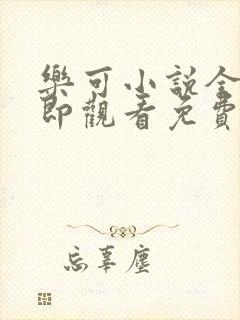 樂可小說全
即觀看免費
忘辜塵